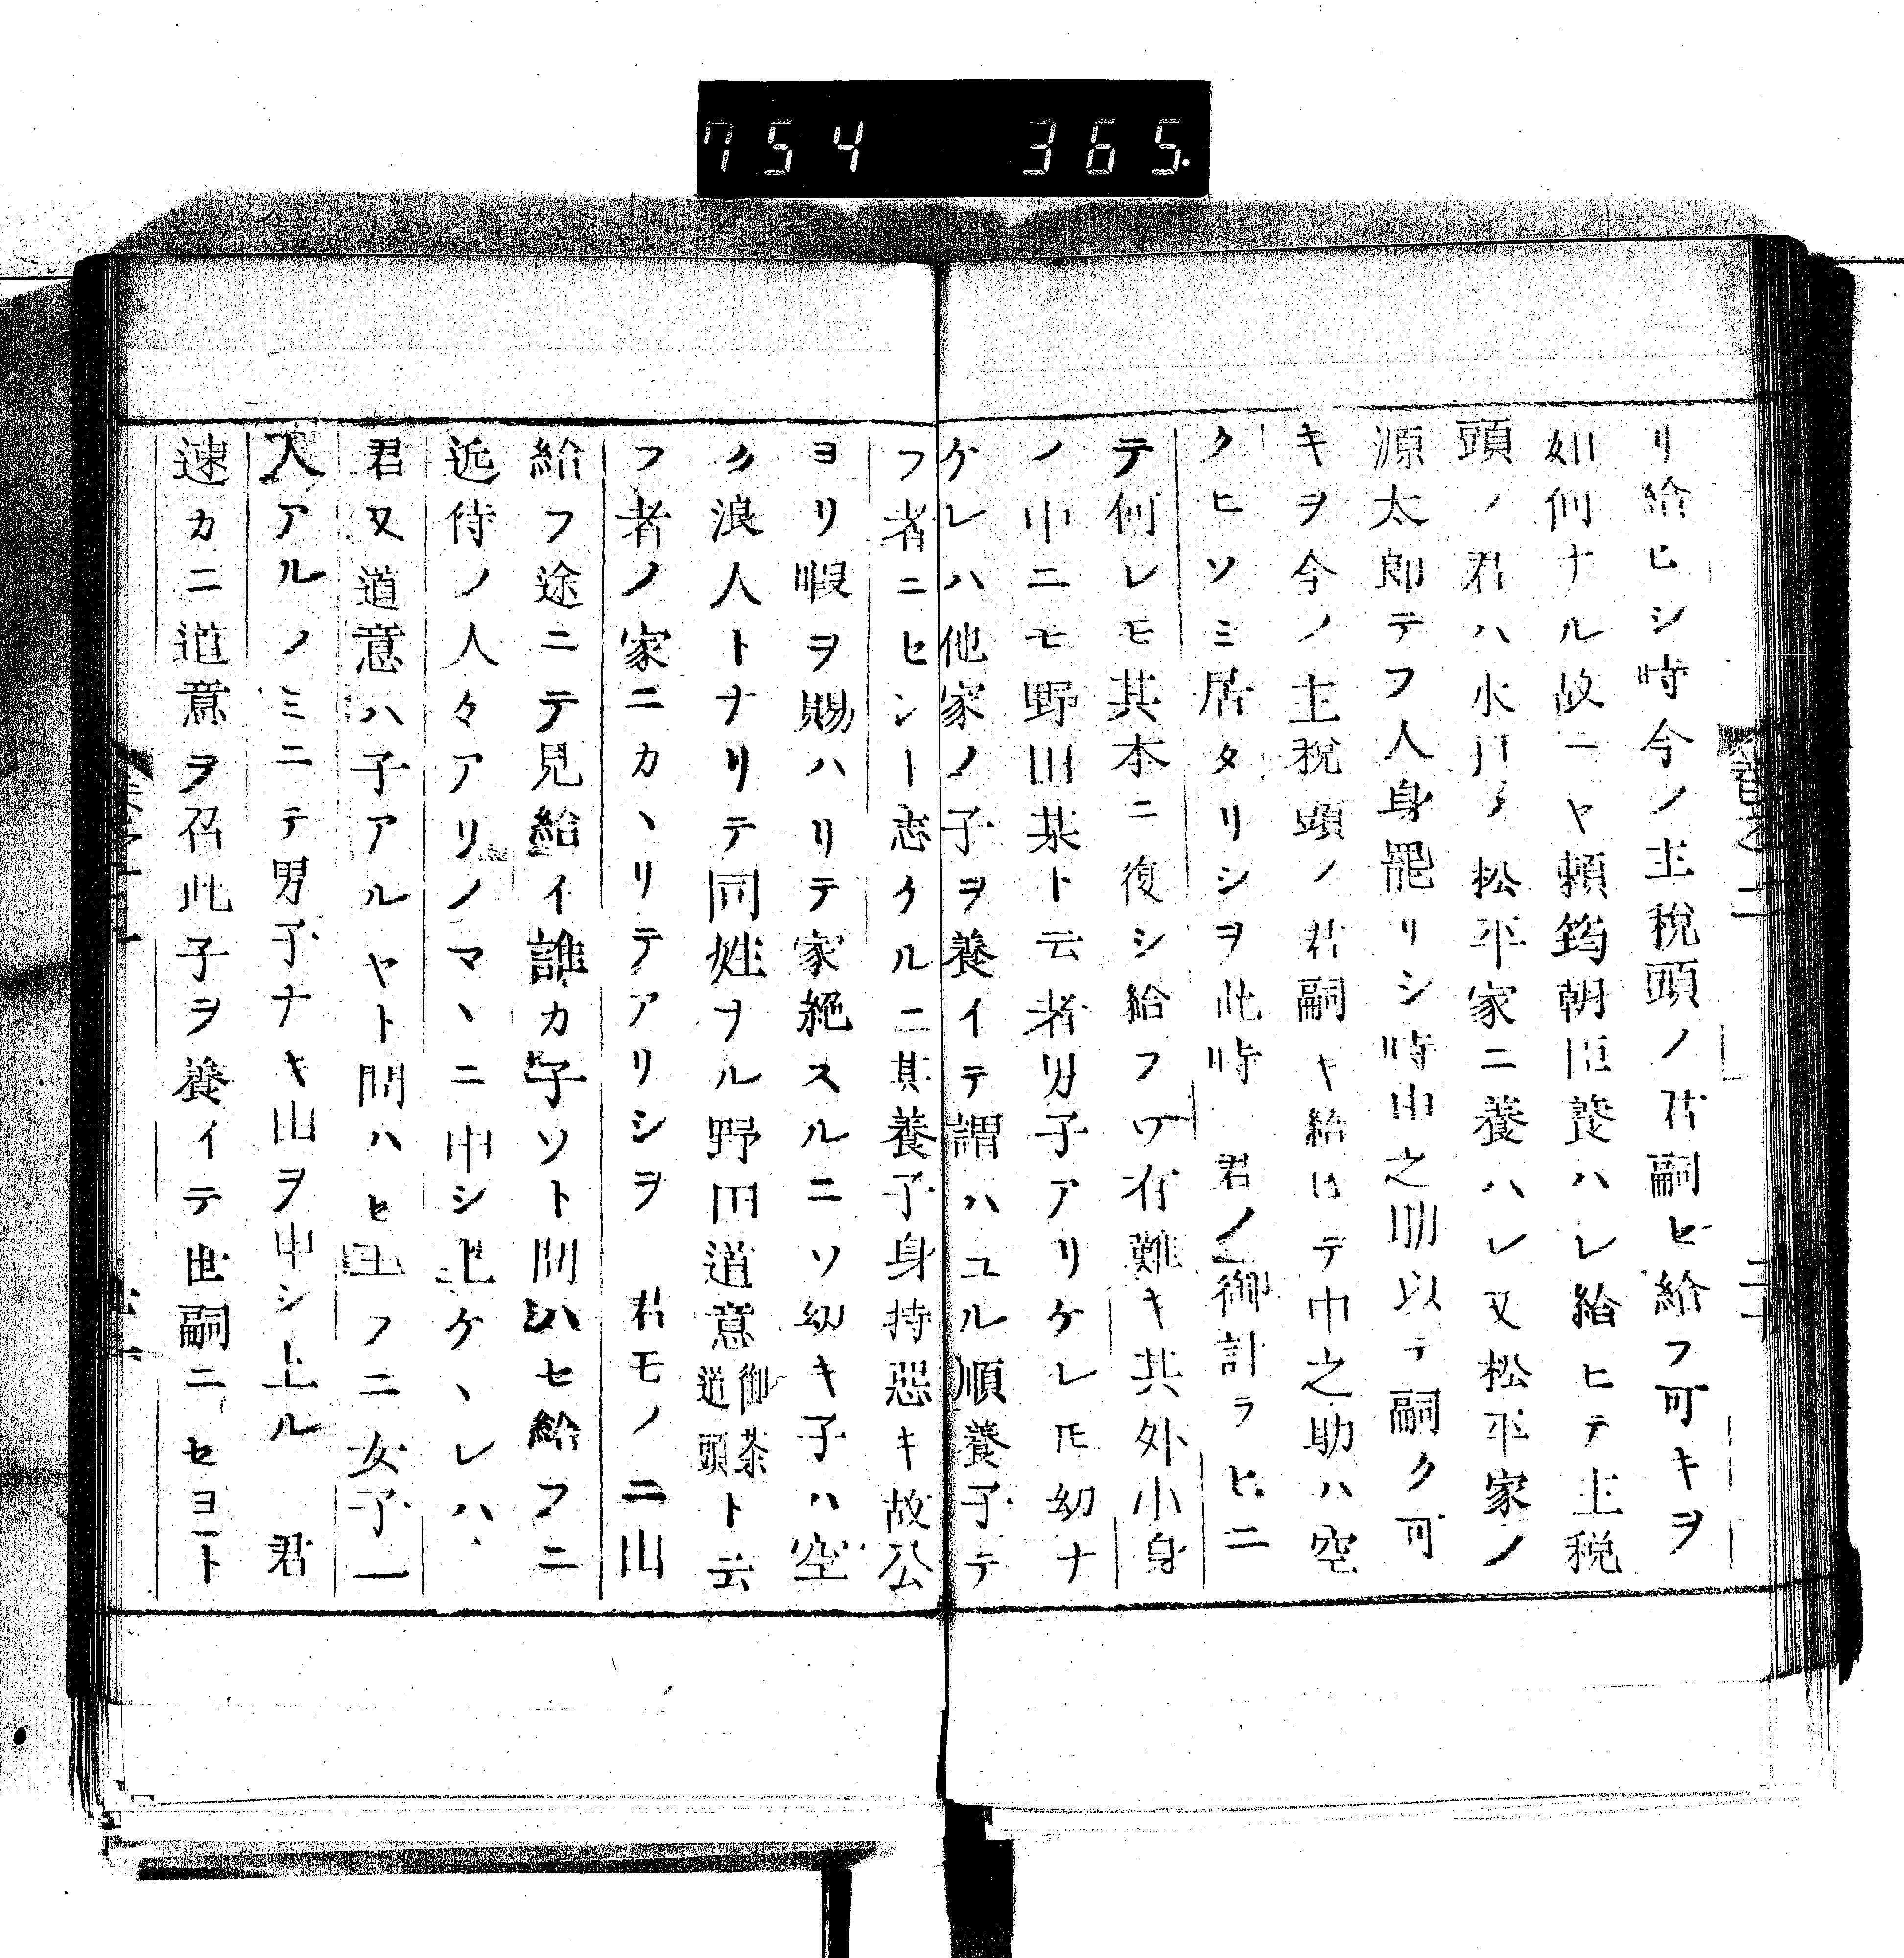 754 365.
リ給ヒシ時今ノ主税頭ノ君嗣ヒ給フ可キヲ
如何ナル故ニヤ頼筠朝臣養ハレ給ヒテ主税
頭ノ君ハ水戸ノ松平家ニ養ハレ又松平家ノ
源太郎テフ人身罷リシ時申之助以テ嗣ク可
キヲ今ノ主税頭ノ君嗣キ給ヒテ申之助ハ空
クヒソミ居タリシヲ此時 君ノ御計ラヒニ
テ何レモ其本ニ復シ給フヿ有難キ其外小身
ノ中ニモ野田某ト云者男子アリケレ𪜈幼ナ
ケレハ他家ノ子ヲ養イテ謂ハユル順養子テ
フ者ニセシー志タルニ其養子身持惡キ故公
ヨリ暇ヲ賜ハリテ家絶スルニソ幼キ子ハ空
ク浪人トナリテ同姓ヲル野田道意御茶道頭ト云
フ者ノ家ニカヽリテアリシヲ 君モノニ出
給フ途ニテ見給イ誰カ子ソト問ハセ給フニ
近待ノ人々アリノマヽニ申シ上ケヽレハ
君又道意ハ子アルヤト問ハセ玉フニ女子一
人アルノミニテ男子ナキ由ヲ申シ上ル 君
速カニ道意ヲ召此子ヲ養イテ世嗣ニセヨート